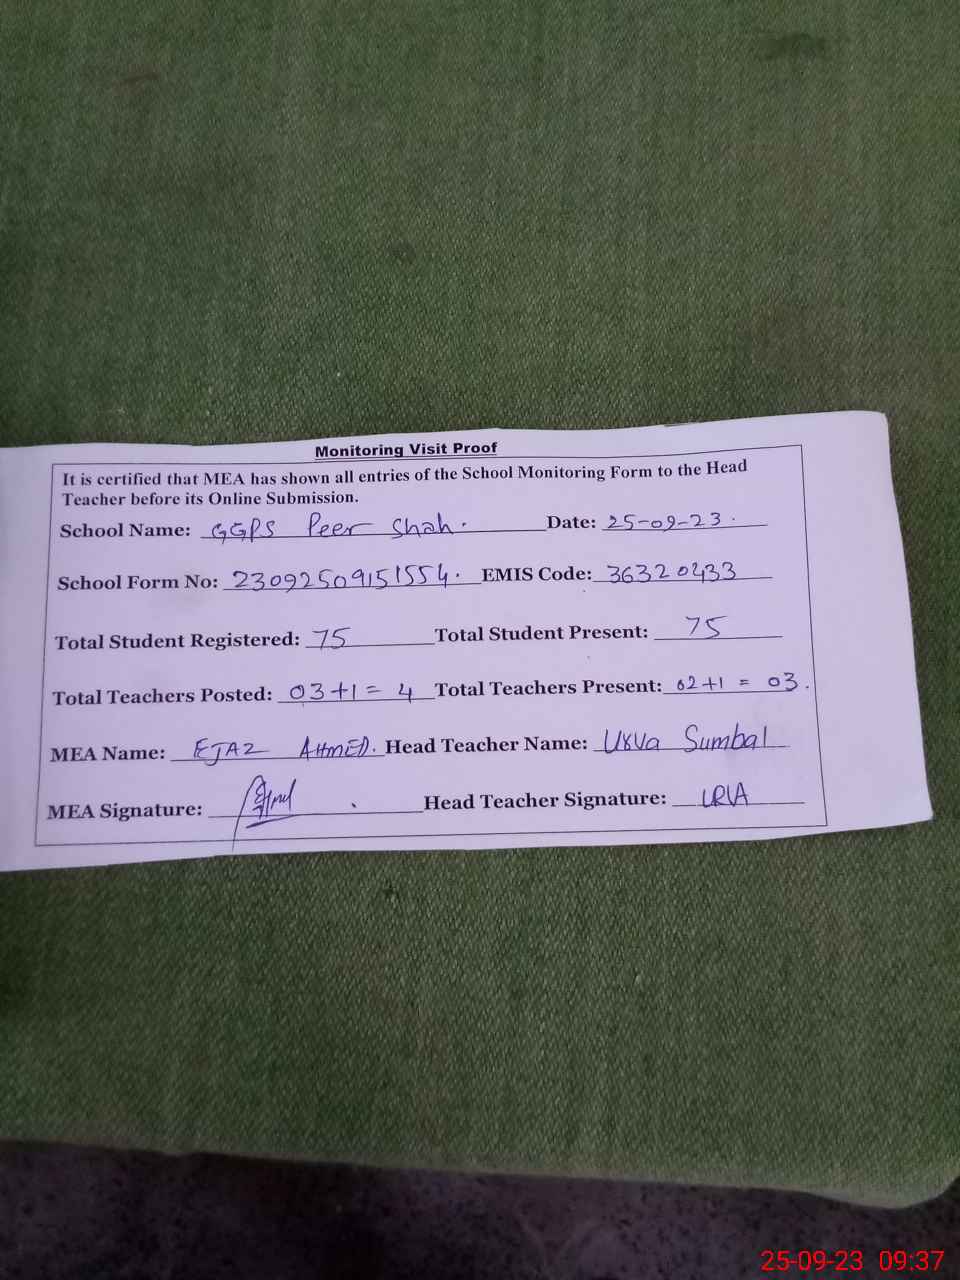 Monitoring Visit Proof
It is certified that MEA has shown all entries of the School Monitoring Form to the Head
Teacher before its Online Submission.
School Name: GGPS Peer Shah. Date: 25-09-23.
School Form No: 23092509151554. EMIS Code: 36320433
Total Student Registered: 75 Total Student Present: 75
Total Teachers Posted: 03+1= 4 Total Teachers Present: 02+1 = 03.
MEA Name: EJAZ AHMED. Head Teacher Name: Sumbal
MEA Signature: Head Teacher Signature:
25-09-23 09:37